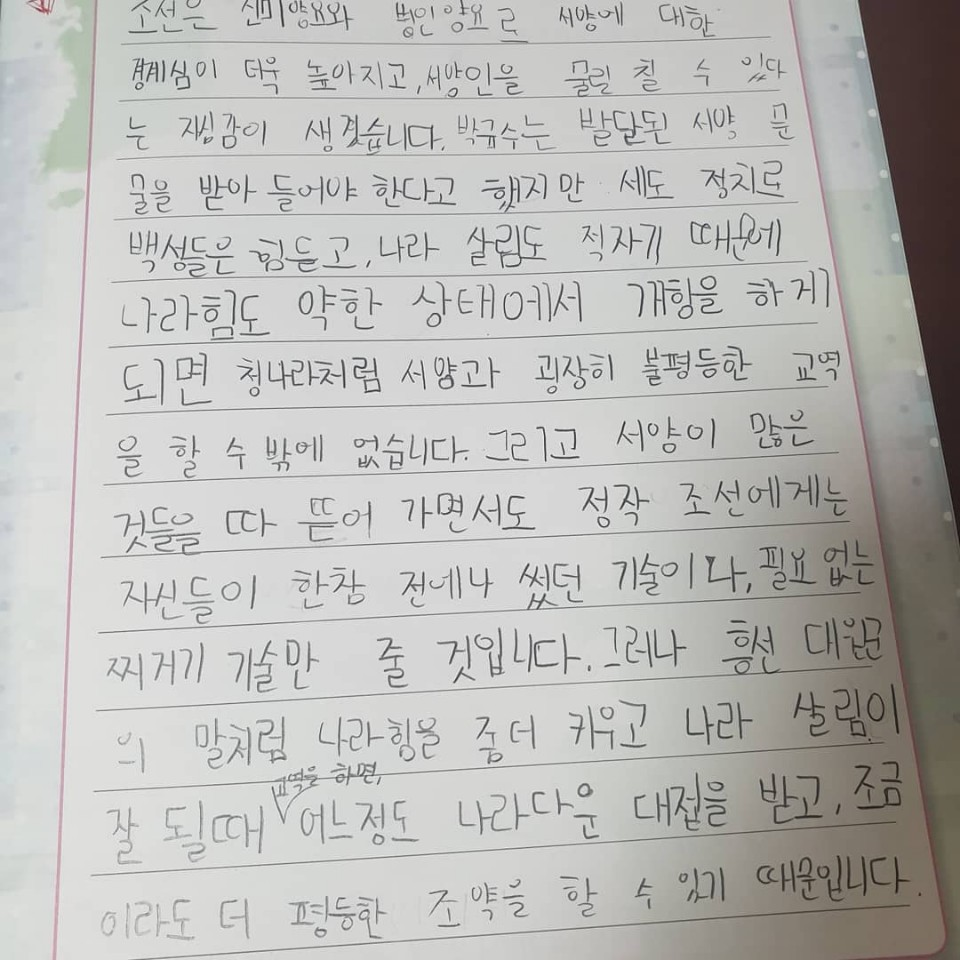 조선은 신미양요와 병인양요로 서양에 대한
경계심이 더욱 높아지고, 서양인을 물릴 칠 수 있다
는 자심감이 생겼습니다. 박규수는 발달된 서양 문
물을 받아 들어야 한다고 했지만 세도 정치로
백성들은 힘들고, 나라 살림도 적자기 때문에
나라힘도 약한 상태에서 개항을 하게
되면 청나라처럼 서양과 굉장히 불평등한 교역
을 할 수 밖에 없습니다. 그리고 서양이 많은
것들을 따 뜯어 가면서도 정작 조선에게는
자신들이 한참 전에나 썼던 기술이나, 필요없는
찌거기 기술만 줄 것입니다. 그러나 흥선 대원군
의 말처럼 나라힘을 좀더 키우고 나라 살림이
잘 될때 교역을 하면, 어느정도 나라다운 대접을 받고, 조금
이라도 더 평등한 조약을 할 수 있기 때문입니다.